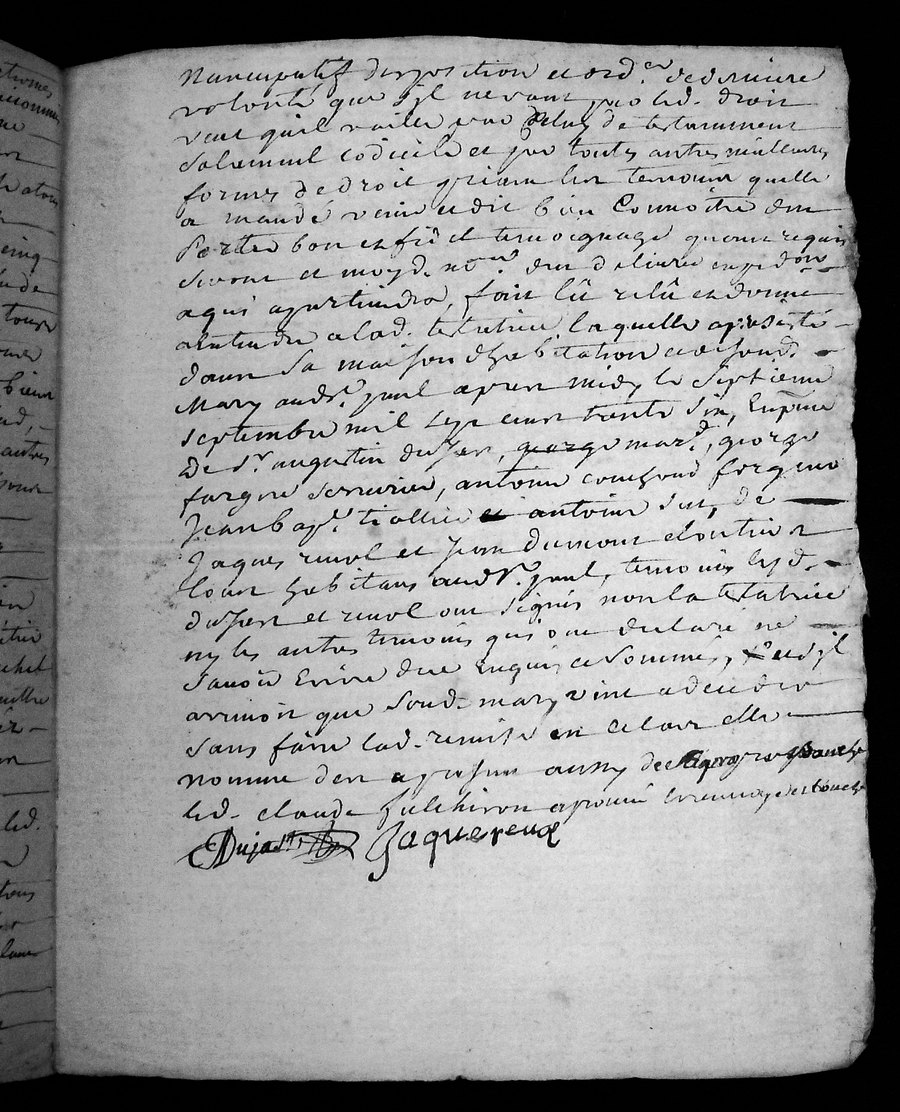 nuncupatif disposition et ord.er de derniere
volonté que s'il ne vaut par led. droit
veut quil vaille par Celuy de testamment
Solemnel codicile et par toutes autres meilleures
formes de droit priant les temoins quelle
a mandé venir et dit bien Connoitre den
Porter bon et fidel temoignage quant requis
seront et moyd. no.re den delivrer expedōn
a qui apartiendra, fait lû relû et donné
a entendre a lad. testatrice laquelle a persisté
dans sa maison d'habitation
mary aud.t paul apres midy le Septieme
septembre mil sept cent trente six, En pnce
De S.r augustin dujast, george mar.d, george
fargere serrurier, antoine couhond forgeur
Jean bap.t tiollier et antoine Just, de
Jaques revol et Jean dumont cloutrier
tous habitans aud.t paul, temoins lesd.
dujast et revol ont signés non la testatrice
ny les autres temoins qui ont declaré ne
savoir Ecrire de ce Enquis et Sommés, Et ou s'il
arrivoit que Sond. mary vint a deceder
sans faire lad. remise en ce cas elle
nomme des a present aussy
led. claude fulchiron
Dujast Jaquereuol